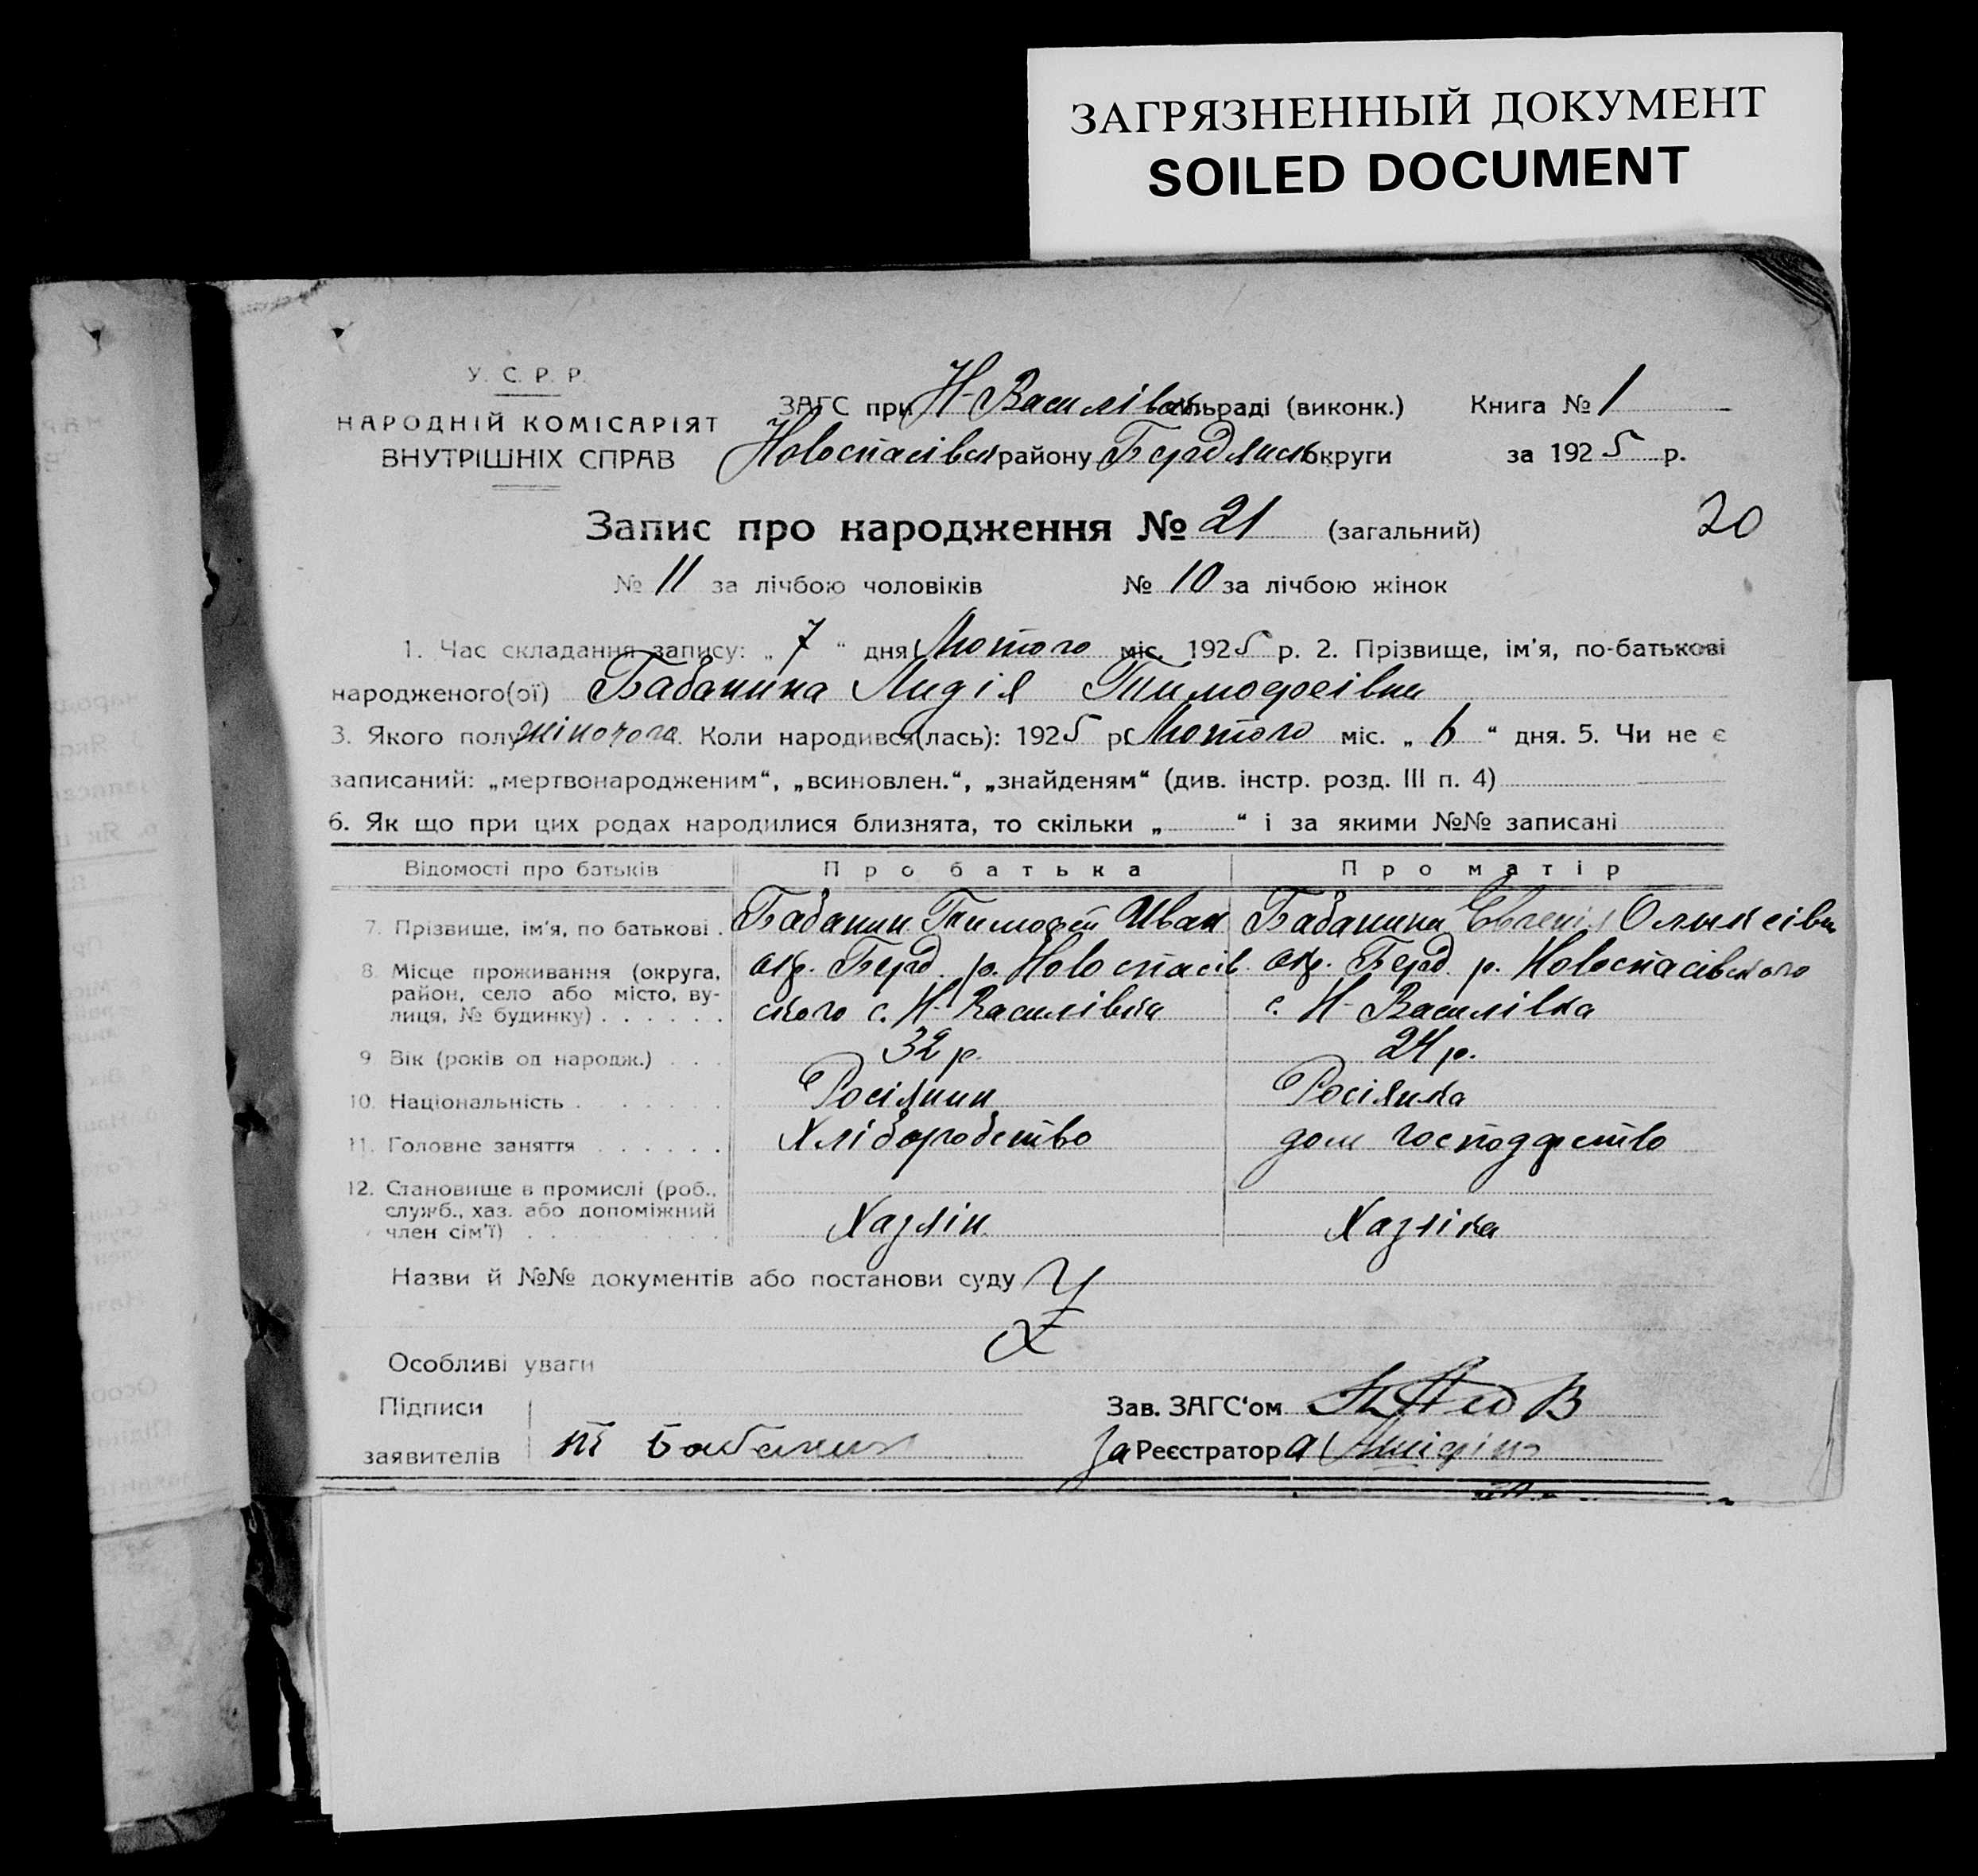 ЗАГРЯЗНЕННЫЙ ДОКУМЕНТ
SOILED DOCUMENT
У. С. Р. Р.
НАРОДНІЙ КОМІСАРІЯТ
ВНУТРІШНІХ СПРАВ
ЗАГС при Н-Василівск сільраді (виконк.) Книга № 1
Новоспасівск району Бердянськ округи за 1925 р.
Запис про народження № 21 (загальний) 20
№ 11 за лічбою чоловіків № 10 за лічбою жінок
1. Час складання запису: „ 7 “ дня Лютого міс. 1925 р. 2. Прізвище, ім'я, по-батькові
народженого(ої) Бабанина Лидія Тимофеівни
3. Якого полу жіночого. Коли народився(лась): 1925 р. Лютого міс. „ 6 “ дня. 5. Чи не є
записаний: „мертвонародженим“, „всиновлен.“, „знайденям“ (див. інстр. розд. III п. 4)
6. Як що при цих родах народилися близнята, то скільки „ “ і за якими №№ записані
Відомості про батьків Про батька Про матір
7. Прізвище, ім'я, по батькові . Бабанин Тимофей Иван Бабанина Евгенія Олексівн
8. Місце проживання (округа, район, село або місто, вулиця, № будинку) . . . . . . окр. Берд. р. Новоспасів окр. Берд р. Новоспасівского
ского с. Н-Василівка с. Н-Василівка
9 Вік (років од народж.) . . . 32 р. 24 р.
10. Національність . . . . . . . Росіянин Росіянка
11. Головне заняття . . . . . . Хліборобство дом господарство
12. Становище в промислі (роб., служб., хаз. або допоміжний член сім'ї) . . . . . . . . . Хазяін Хазяіка
Назви й №№ документів або постанови суду
Особливі уваги
Підписи Зав. ЗАГС'ом
заявителів Т Бабанин За Реєстратора